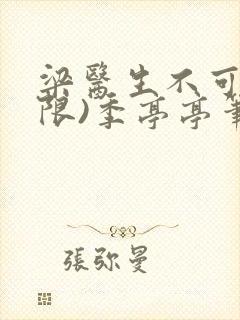 梁醫生不可
限)季亭亭
張弥曼